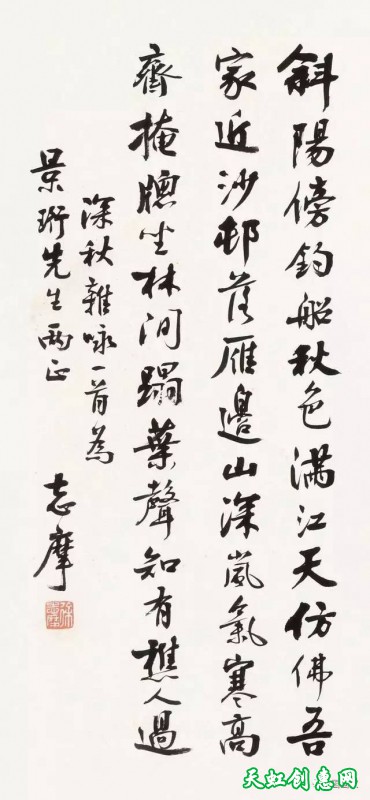 斜陽傍釣船秋色滿江天仿佛吾
家近沙邨落雁邊山深嵐氣寒高
齋掩牕坐林间蹋葉聲知有樵人過
深秋雜咏一首為
景珩先生兩正
志摩
天虹创惠网